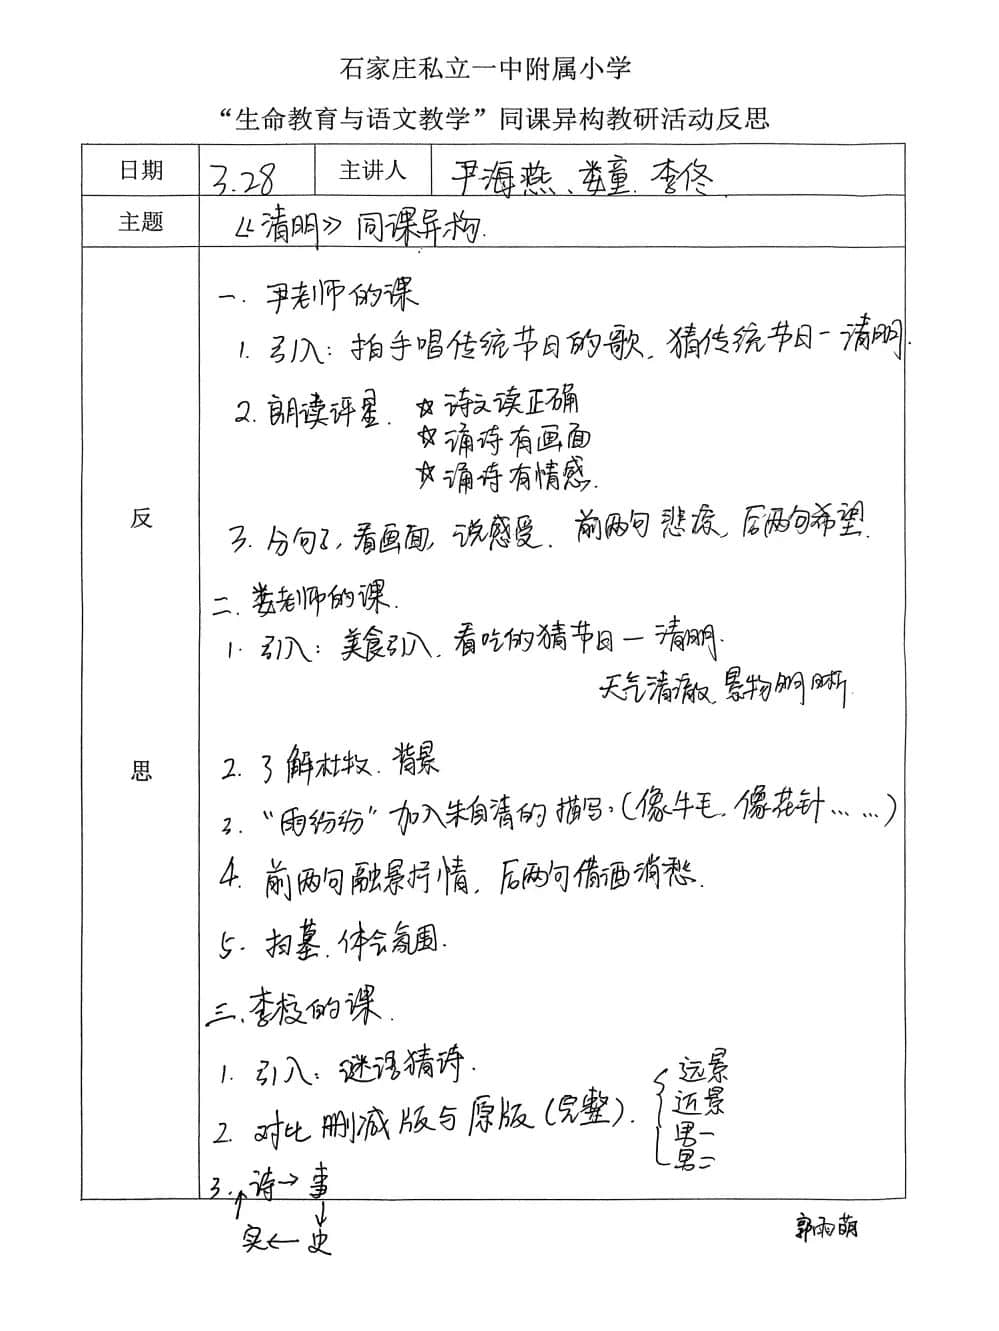 石家庄私立一中附属小学
“生命教育与语文教学”同课异构教研活动反思
日期 3.28 主讲人 尹海燕、娄童、李佟
主题 《清明》同课异构.
反思
一. 尹老师的课
1. 引入：拍手唱传统节日的歌，猜传统节日—清明.
2. 朗读评星. ☆诗文读正确
☆诵诗有画面
☆诵诗有情感.
3. 分句子，看画面，说感受. 前两句悲凉，后两句希望.
二. 娄老师的课.
1. 引入：美食引入，看吃的猜节日—清明.
天气清澈，景物明晰.
2. 了解杜牧、背景
3. “雨纷纷”加入朱自清的描写：(像牛毛，像花针……)
4. 前两句融景抒情，后两句借酒消愁.
5. 扫墓、体会氛围.
三. 李校的课.
1. 引入：谜语猜诗.
2. 对比删减版与原版(完整).
远景
近景
男一
男二
3. 诗→事
↑ ↓
实←史
郭雨萌